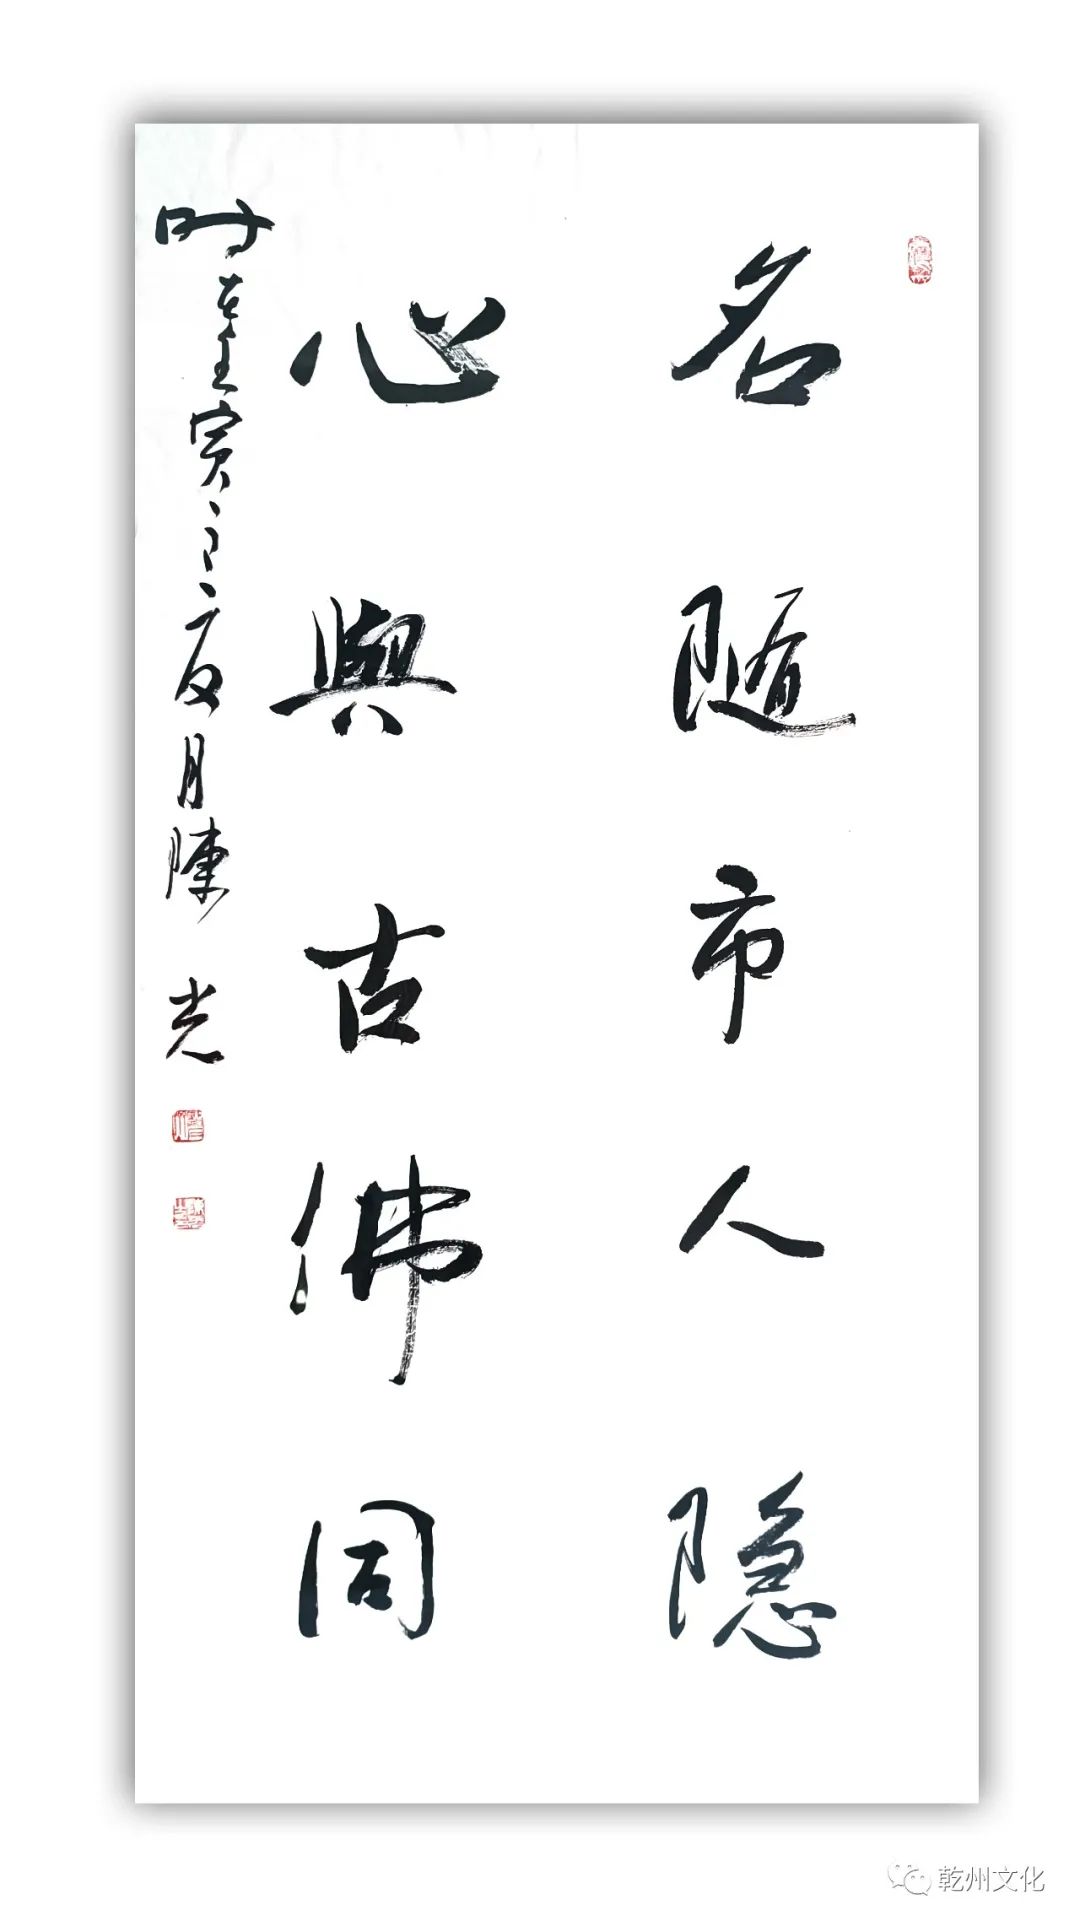 名随市人隐
心與古佛同
时在壬寅之夏月陳光
乾州文化